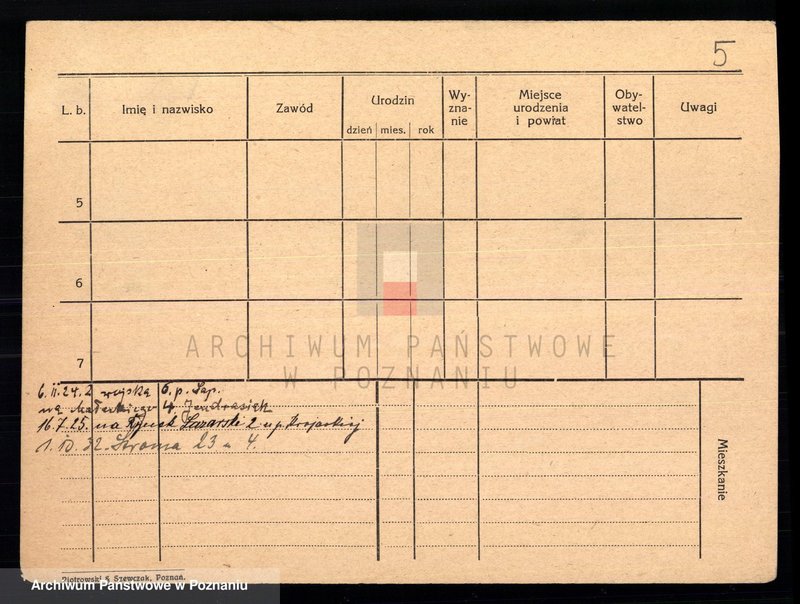 5
L. b.
Imię i nazwisko
Zawód
Urodzin
dzień mies. rok
Wy-
zna-
nie
Miejsce
urodzenia
i powiat
Oby-
watel-
stwo
Uwagi
5
6
7
ARCHIWUM PAŃSTWOWE
W POZNANIU
6.11.24. z wojska 6. p. Sap.
na Małeckiego 4 Jendrasiak
16.7.25. na Rynek Łazarski 2 u p.
1.10.32. Stroma 23 m 4.
Mieszkanie
Piotrowski & Szewczak, Poznań.
Archiwum Państwowe w Poznaniu